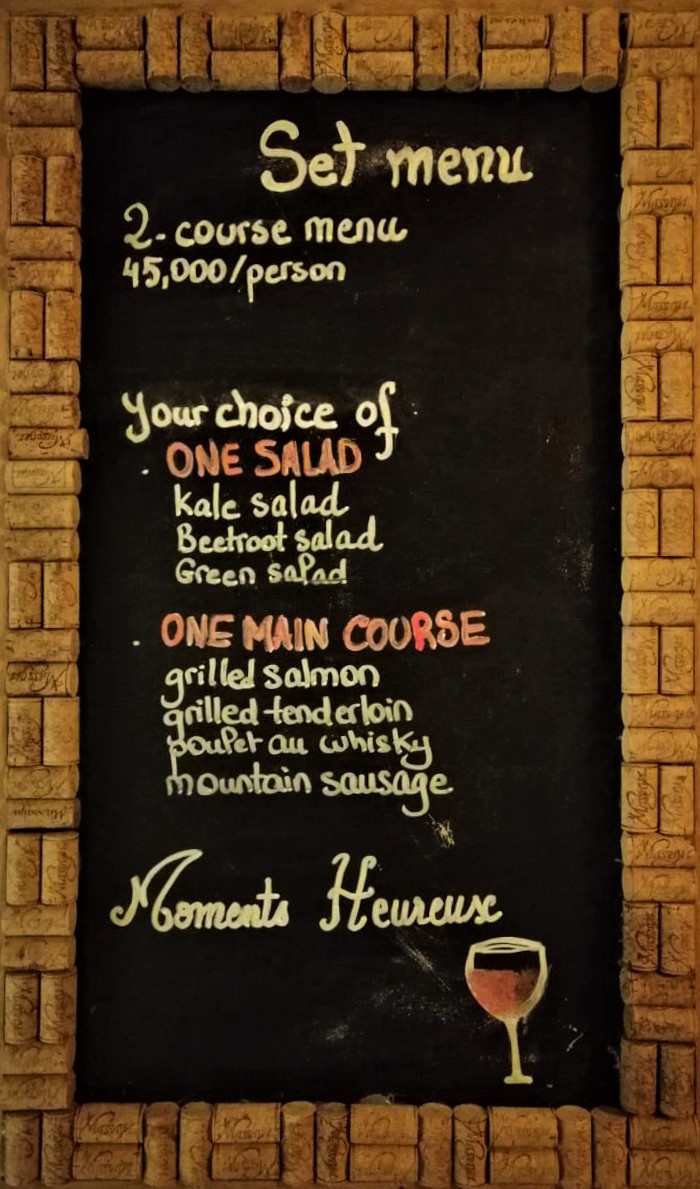 Set menu
2-course menu
45,000/person
Your choice of
. ONE SALAD
Kale salad
Beetroot salad
Green salad
. ONE MAIN COURSE
grilled salmon
grilled tenderloin
poulet au whisky
mountain sausage
Moments Heureux